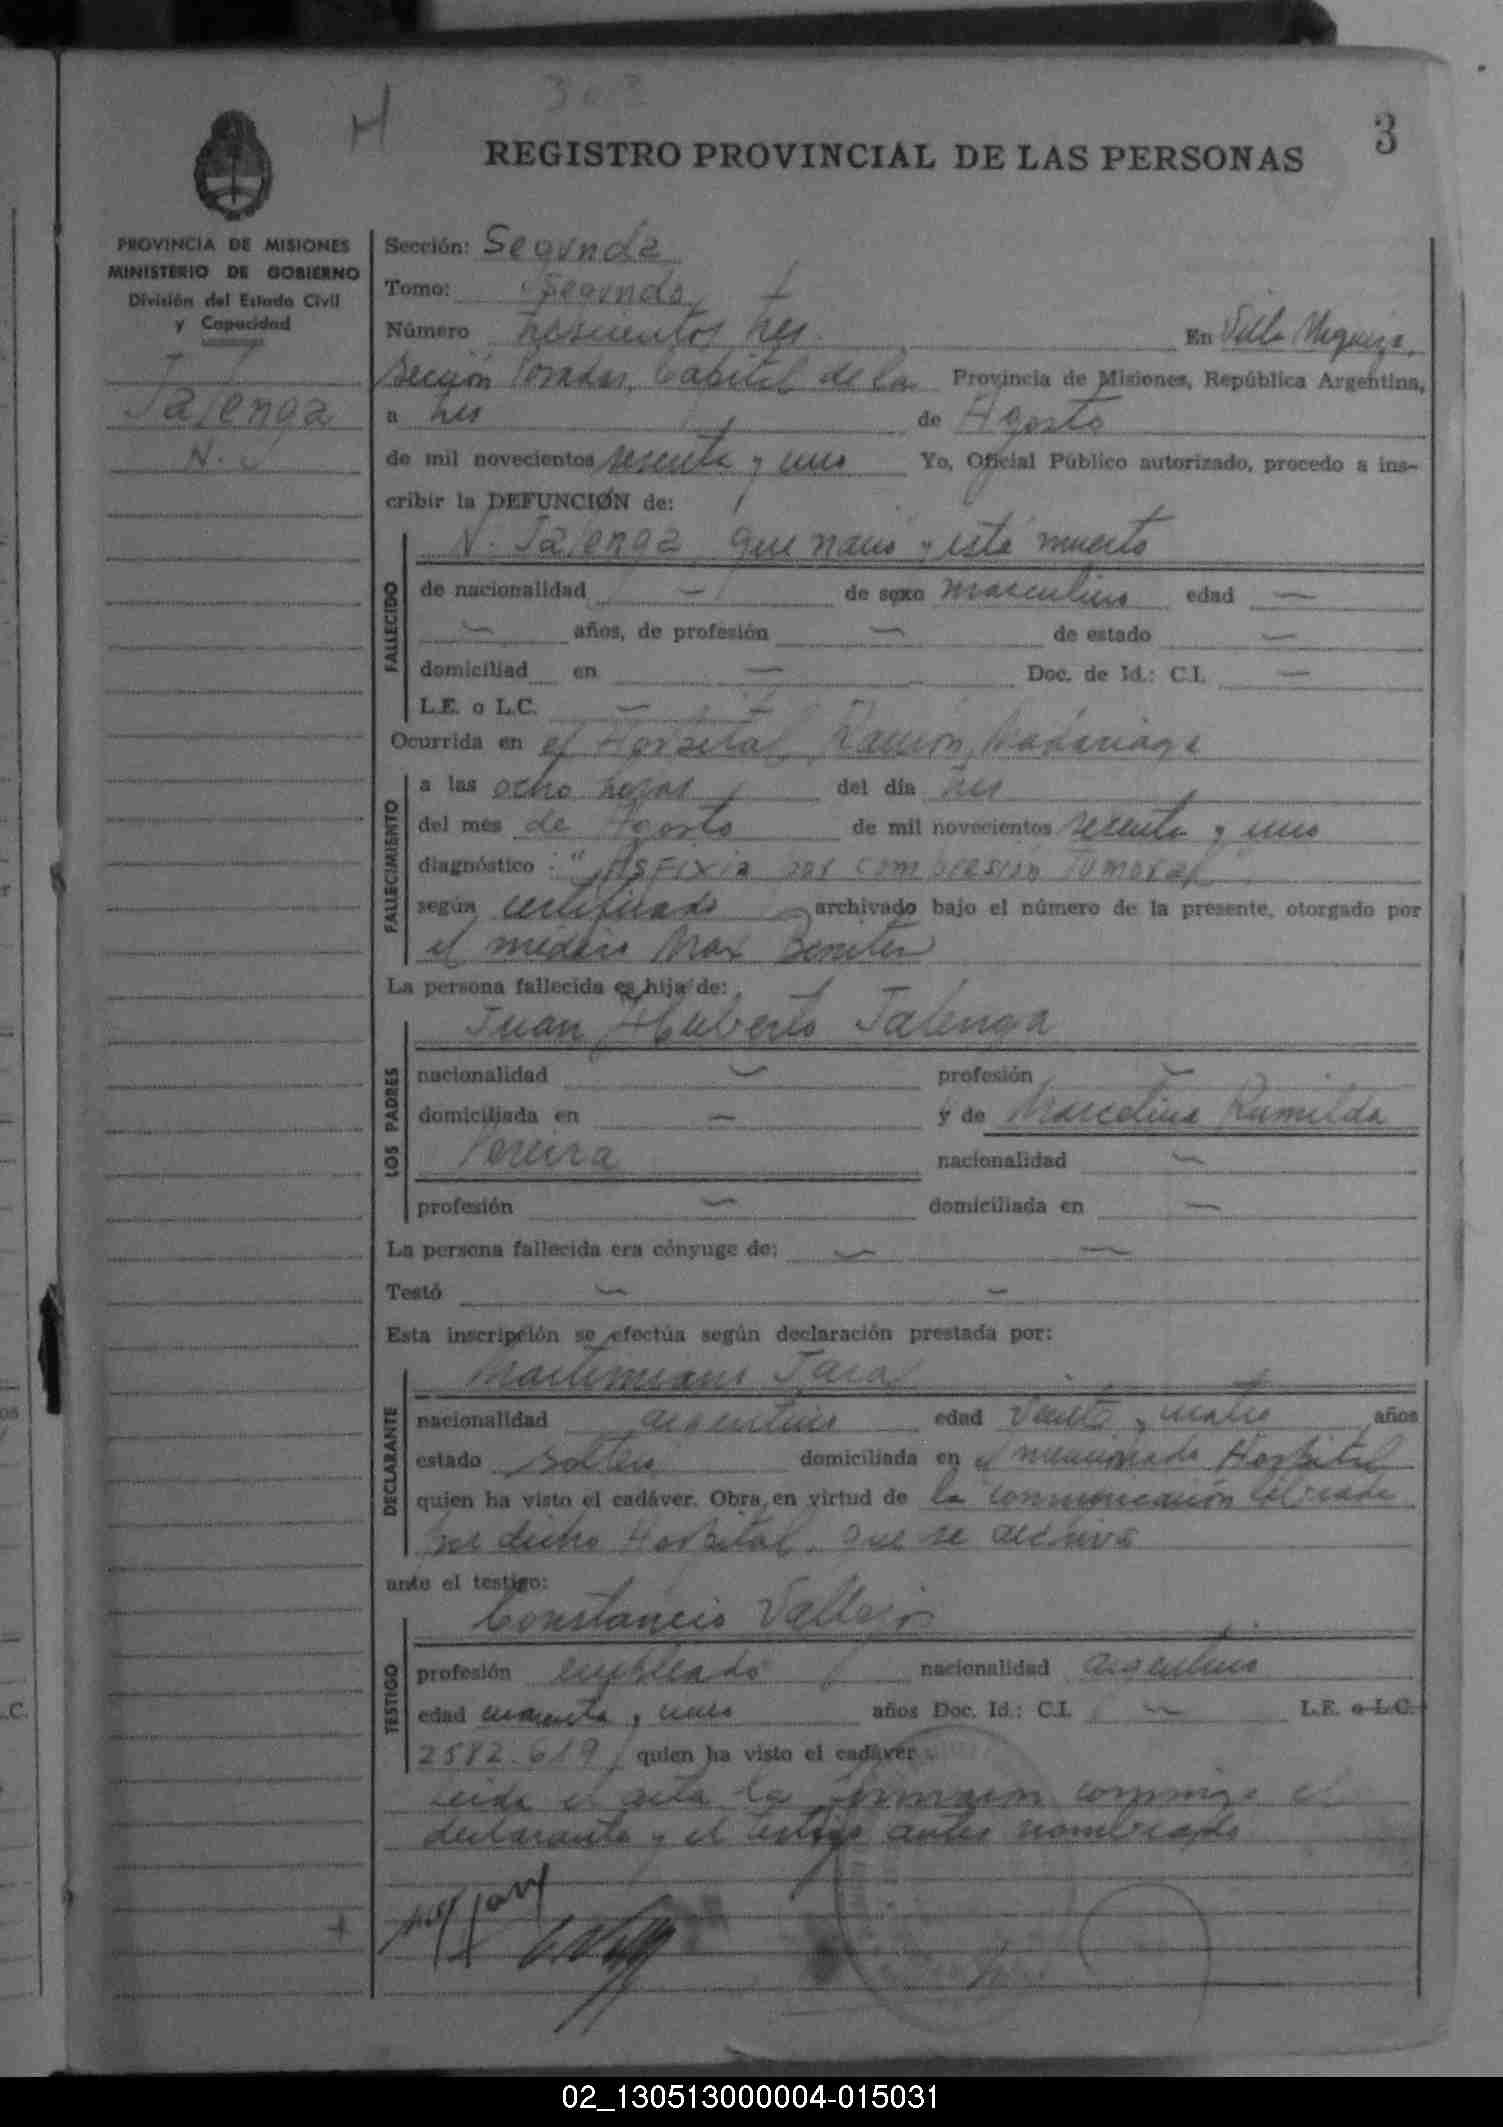 H 303
3
REGISTRO PROVINCIAL DE LAS PERSONAS
PROVINCIA DE MISIONES
MINISTERIO DE GOBIERNO
División del Estado Civil
y Capacidad
Talenga
N.
Sección: Segunda
Tomo: Segundo
Número trescientos tres. En Villa Urquiza,
Sección Posadas, Capital de la Provincia de Misiones, República Argentina,
a tres de Agosto
de mil novecientos sesenta y uno Yo, Oficial Público autorizado, procedo a ins-
cribir la DEFUNCIÓN de:
N. Talenga que nació y está muerto
FALLECIDO
de nacionalidad — de sexo masculino edad —
— años, de profesión — de estado —
domiciliad en — Doc. de Id.: C.I. —
L.E. o L.C. —
Ocurrida en el Hospital Ramón Madariaga
FALLECIMIENTO
a las ocho horas del día tres
del mes de Agosto de mil novecientos sesenta y uno
diagnóstico : "Asfixia por compresión Tumoral"
según certificado archivado bajo el número de la presente, otorgado por
el médico Max Benitez
La persona fallecida es hija de:
Juan Huberto Talenga
LOS PADRES
nacionalidad — profesión —
domiciliada en — y de Marcelina Rumilda
Pereira nacionalidad —
profesión — domiciliada en —
La persona fallecida era cónyuge de: — —
Testó — —
Esta inscripción se efectúa según declaración prestada por:
Martimiano Jara
DECLARANTE
nacionalidad argentino edad veinte y cuatro años
estado soltero domiciliada en el mencionado Hospital
quien ha visto el cadáver. Obra en virtud de la comunicación librada
por dicho Hospital, que se archiva
ante el testigo:
Constancio Vallejos
TESTIGO
profesión empleado nacionalidad argentino
edad cuarenta y uno años Doc. Id.: C.I. — L.E. o L.C.
2582.619 quien ha visto el cadáver.
Leida el acta la firmaron conmigo el
declarante y el testigo antes nombrado
02_130513000004-015031